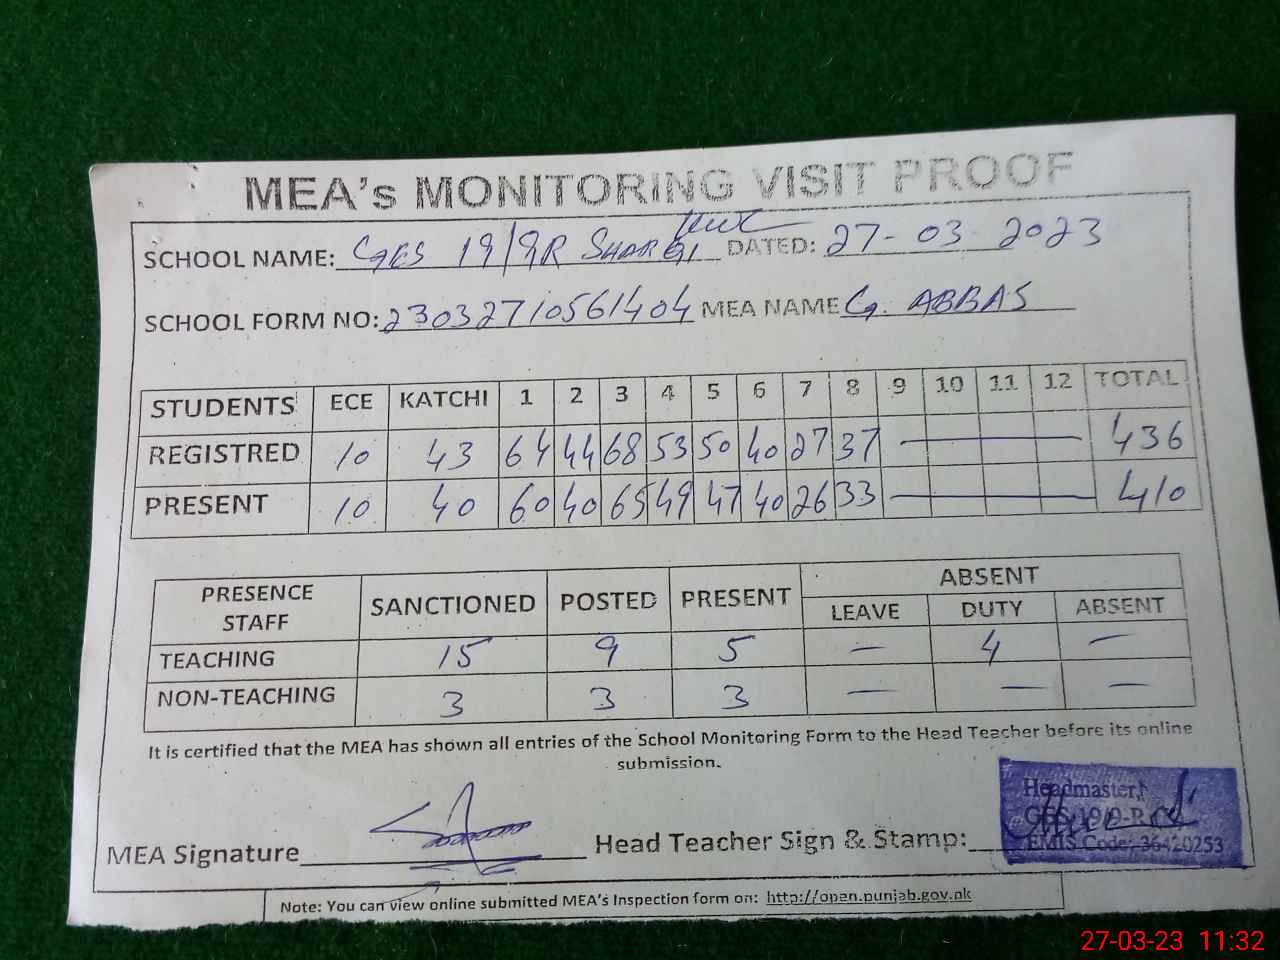 MEA's MONITORING VISIT PROOF
SCHOOL NAME: GES 19/9R SHARQI DATED: 27-03-2023
SCHOOL FORM NO: 23032710561404 MEA NAME G. ABBAS
STUDENTS ECE KATCHI 1 2 3 4 5 6 7 8 9 10 11 12 TOTAL
REGISTRED 10 43 64 44 68 53 50 40 27 37 — 436
PRESENT 10 40 60 40 65 49 47 40 26 33 — 410
PRESENCE STAFF SANCTIONED POSTED PRESENT ABSENT
LEAVE DUTY ABSENT
TEACHING 15 9 5 — 4 —
NON-TEACHING 3 3 3 — — —
It is certified that the MEA has shown all entries of the School Monitoring Form to the Head Teacher before its online
submission.
Headmaster
GES 19/9-R
EMIS Code:- 36420253
MEA Signature Head Teacher Sign & Stamp:
Note: You can view online submitted MEA's Inspection form on: http://open.punjab.gov.pk
27-03-23 11:32